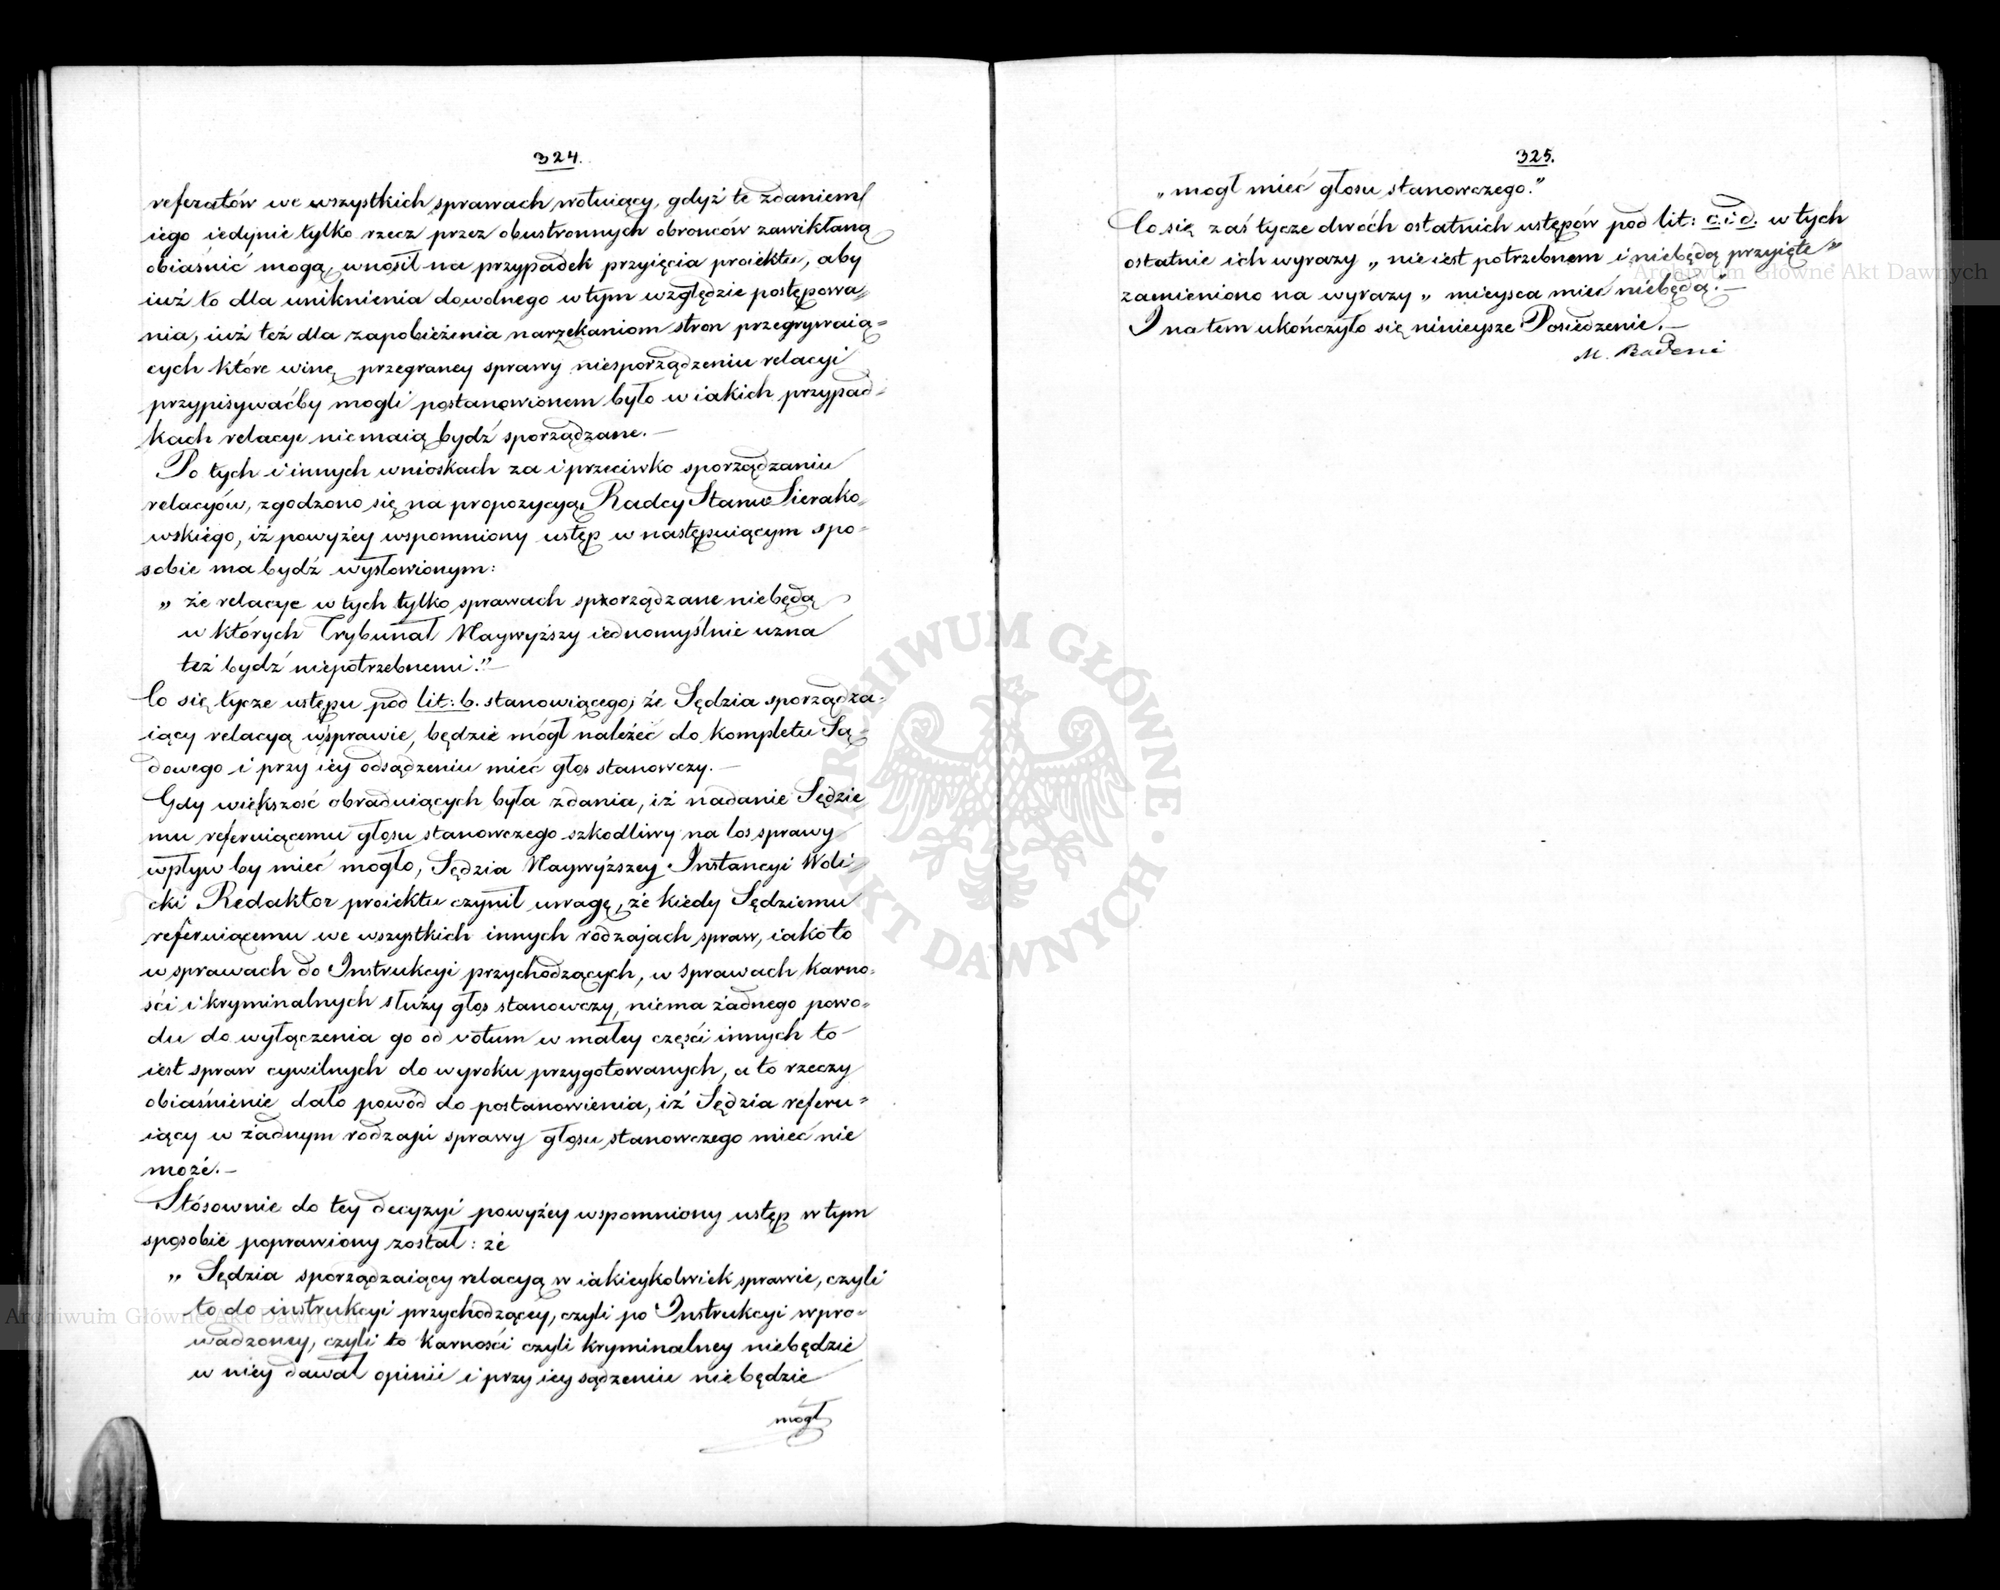 324.
referatów we wszystkich sprawach wotuiący, gdyż te zdaniem
iego iedynie tylko rzecz przez obustronnych obrońców zawikłaną
obiaśnić mogą, wnosił na przypadek przyięcia proiektu, aby
iuż to dla uniknienia dowolnego w tym względzie postępowa„
nia, iuż też dla zapobieżenia narzekaniom stron przegrywaią=
cych które winę przegraney sprawy niesporządzeniu relacyi
przypisywaćby mogli postanowionem było w iakich przypad=
kach relacye niemaią bydź sporządzane.—
Po tych i innych wnioskach za i przeciwko sporządzaniu
relacyów, zgodzono się na propozycyą Radcy Stanu Sierako„
wskiego, iż powyżey wspomniony ustęp w następuiącym spo=
sobie ma bydź wysłowionym:
„ że relacye w tych tylko sprawach sporządzane niebędą
w których Trybunał Naywyższy iednomyślnie uzna
też bydź niepotrzebnemi."—
Co się tycze ustępu pod lit: b. stanowiącego, że Sędzia sporządza=
iący relacyą wsprawie, będzie mógł należeć do kompletu Są=
dowego i przy iey odsądzeniu mieć głos stanowczy.—
Gdy większość obraduiących była zdania, iż nadanie Sędzie
mu referuiącemu głosu stanowczego szkodliwy na los sprawy
wpływ by mieć mogło, Sędzia Naywyższey Instancyi Woli
cki Redaktor proiektu czynił uwagę, że kiedy Sędziemu
referuiącemu we wszystkich innych rodzajach spraw, iako to
w sprawach do Instrukcyi przychodzących, w sprawach karno„
ści i kryminalnych służy głos stanowczy, niema żadnego powo„
du do wyłączenia go od votum w małey części innych to
iest spraw cywilnych do wyroku przygotowanych, a to rzeczy
obiaśnienie dało powód do postanowienia, iż Sędzia referu=
iący w żadnym rodzaju sprawy głosu stanowczego mieć nie
może.—
Stósownie do tey decyzyi powyżey wspomniony ustęp w tym
sposobie poprawiony został: że
„ Sędzia sporządzaiący relacyą w iakieykolwiek sprawie, czyli
to do instrukcyi przychodzącey, czyli po Instrukcyi wpro=
wadzoney, czyli to karności czyli kryminalney niebędzie
w niey dawał opinii i przy iey sądzeniu nie będzie
mógł
325.
„ mogł mieć głosu stanowczego."
Co się zaś tycze dwóch ostatnich ustępów pod lit: c. i d. w tych
ostatnie ich wyrazy „ nie iest potrzebnem i niebędą przyięte"
zamieniono na wyrazy „ mieysca mieć niebędą."—
I na tem ukończyło się ninieysze Posiedzenie.—
M. Badeni
ARCHIWUM GŁÓWNE · AKT DAWNYCH ·
Archiwum Główne Akt Dawnych
Archiwum Główne Akt Dawnych
Archiwum Główne Akt Dawnych